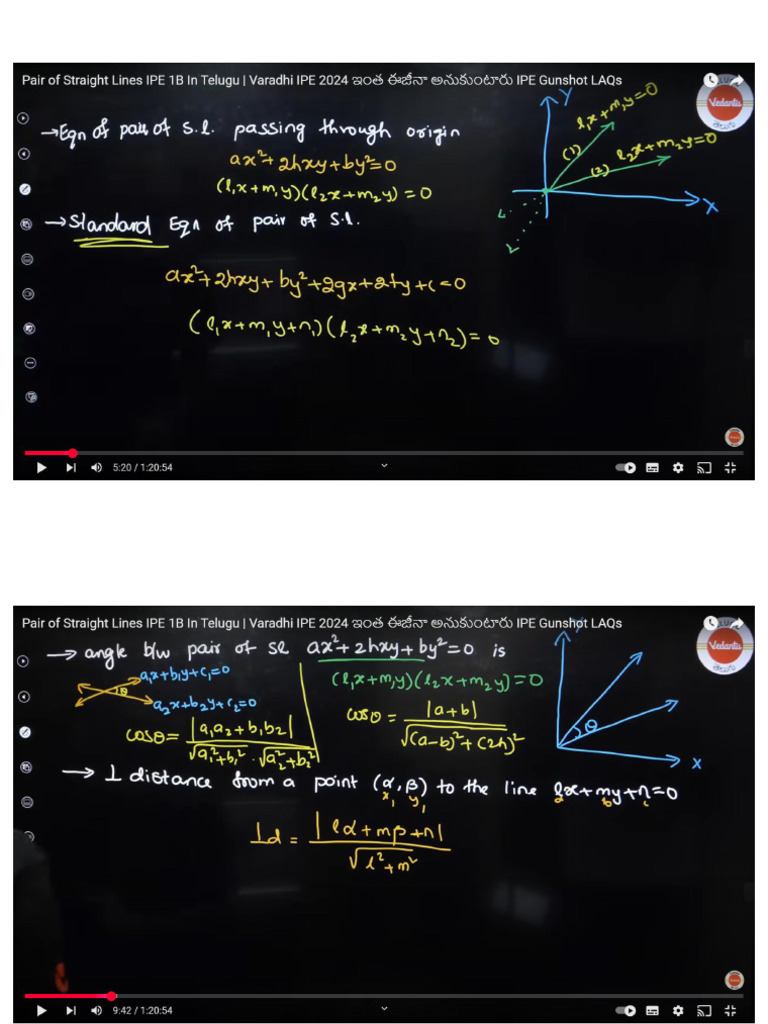 Pair of Straight Lines IPE 1B In Telugu | Varadhi IPE 2024 ఇంత ఈజీనా అనుకుంటారు IPE Gunshot LAQs
Vedantu
→ Eqn of pair of s.l. passing through origin
ax²+2hxy+by²=0
(l₁x+m₁y)(l₂x+m₂y)=0
Y
l₁x+m₁y=0
(1)
l₂x+m₂y=0
(2)
X
→ Standard Eqn of pair of s.l.
ax²+2hxy+by²+2gx+2fy+c=0
(l₁x+m₁y+n₁)(l₂x+m₂y+n₂)=0
5:20 / 1:20:54
Pair of Straight Lines IPE 1B In Telugu | Varadhi IPE 2024 ఇంత ఈజీనా అనుకుంటారు IPE Gunshot LAQs
Vedantu
→ angle b/w pair of sl ax²+2hxy+by²=0 is
a₁x+b₁y+c₁=0
θ
a₂x+b₂y+c₂=0
cosθ = |a₁a₂+b₁b₂| / √a₁²+b₁² · √a₂²+b₂²
(l₁x+m₁y)(l₂x+m₂y)=0
cosθ = |a+b| / √(a-b)²+(2h)²
Y
θ
X
→ ⊥ distance from a point (α,β) to the line lx+my+n=0
x₁ y₁ a b c
⊥d = |lα+mβ+n| / √l²+m²
9:42 / 1:20:54